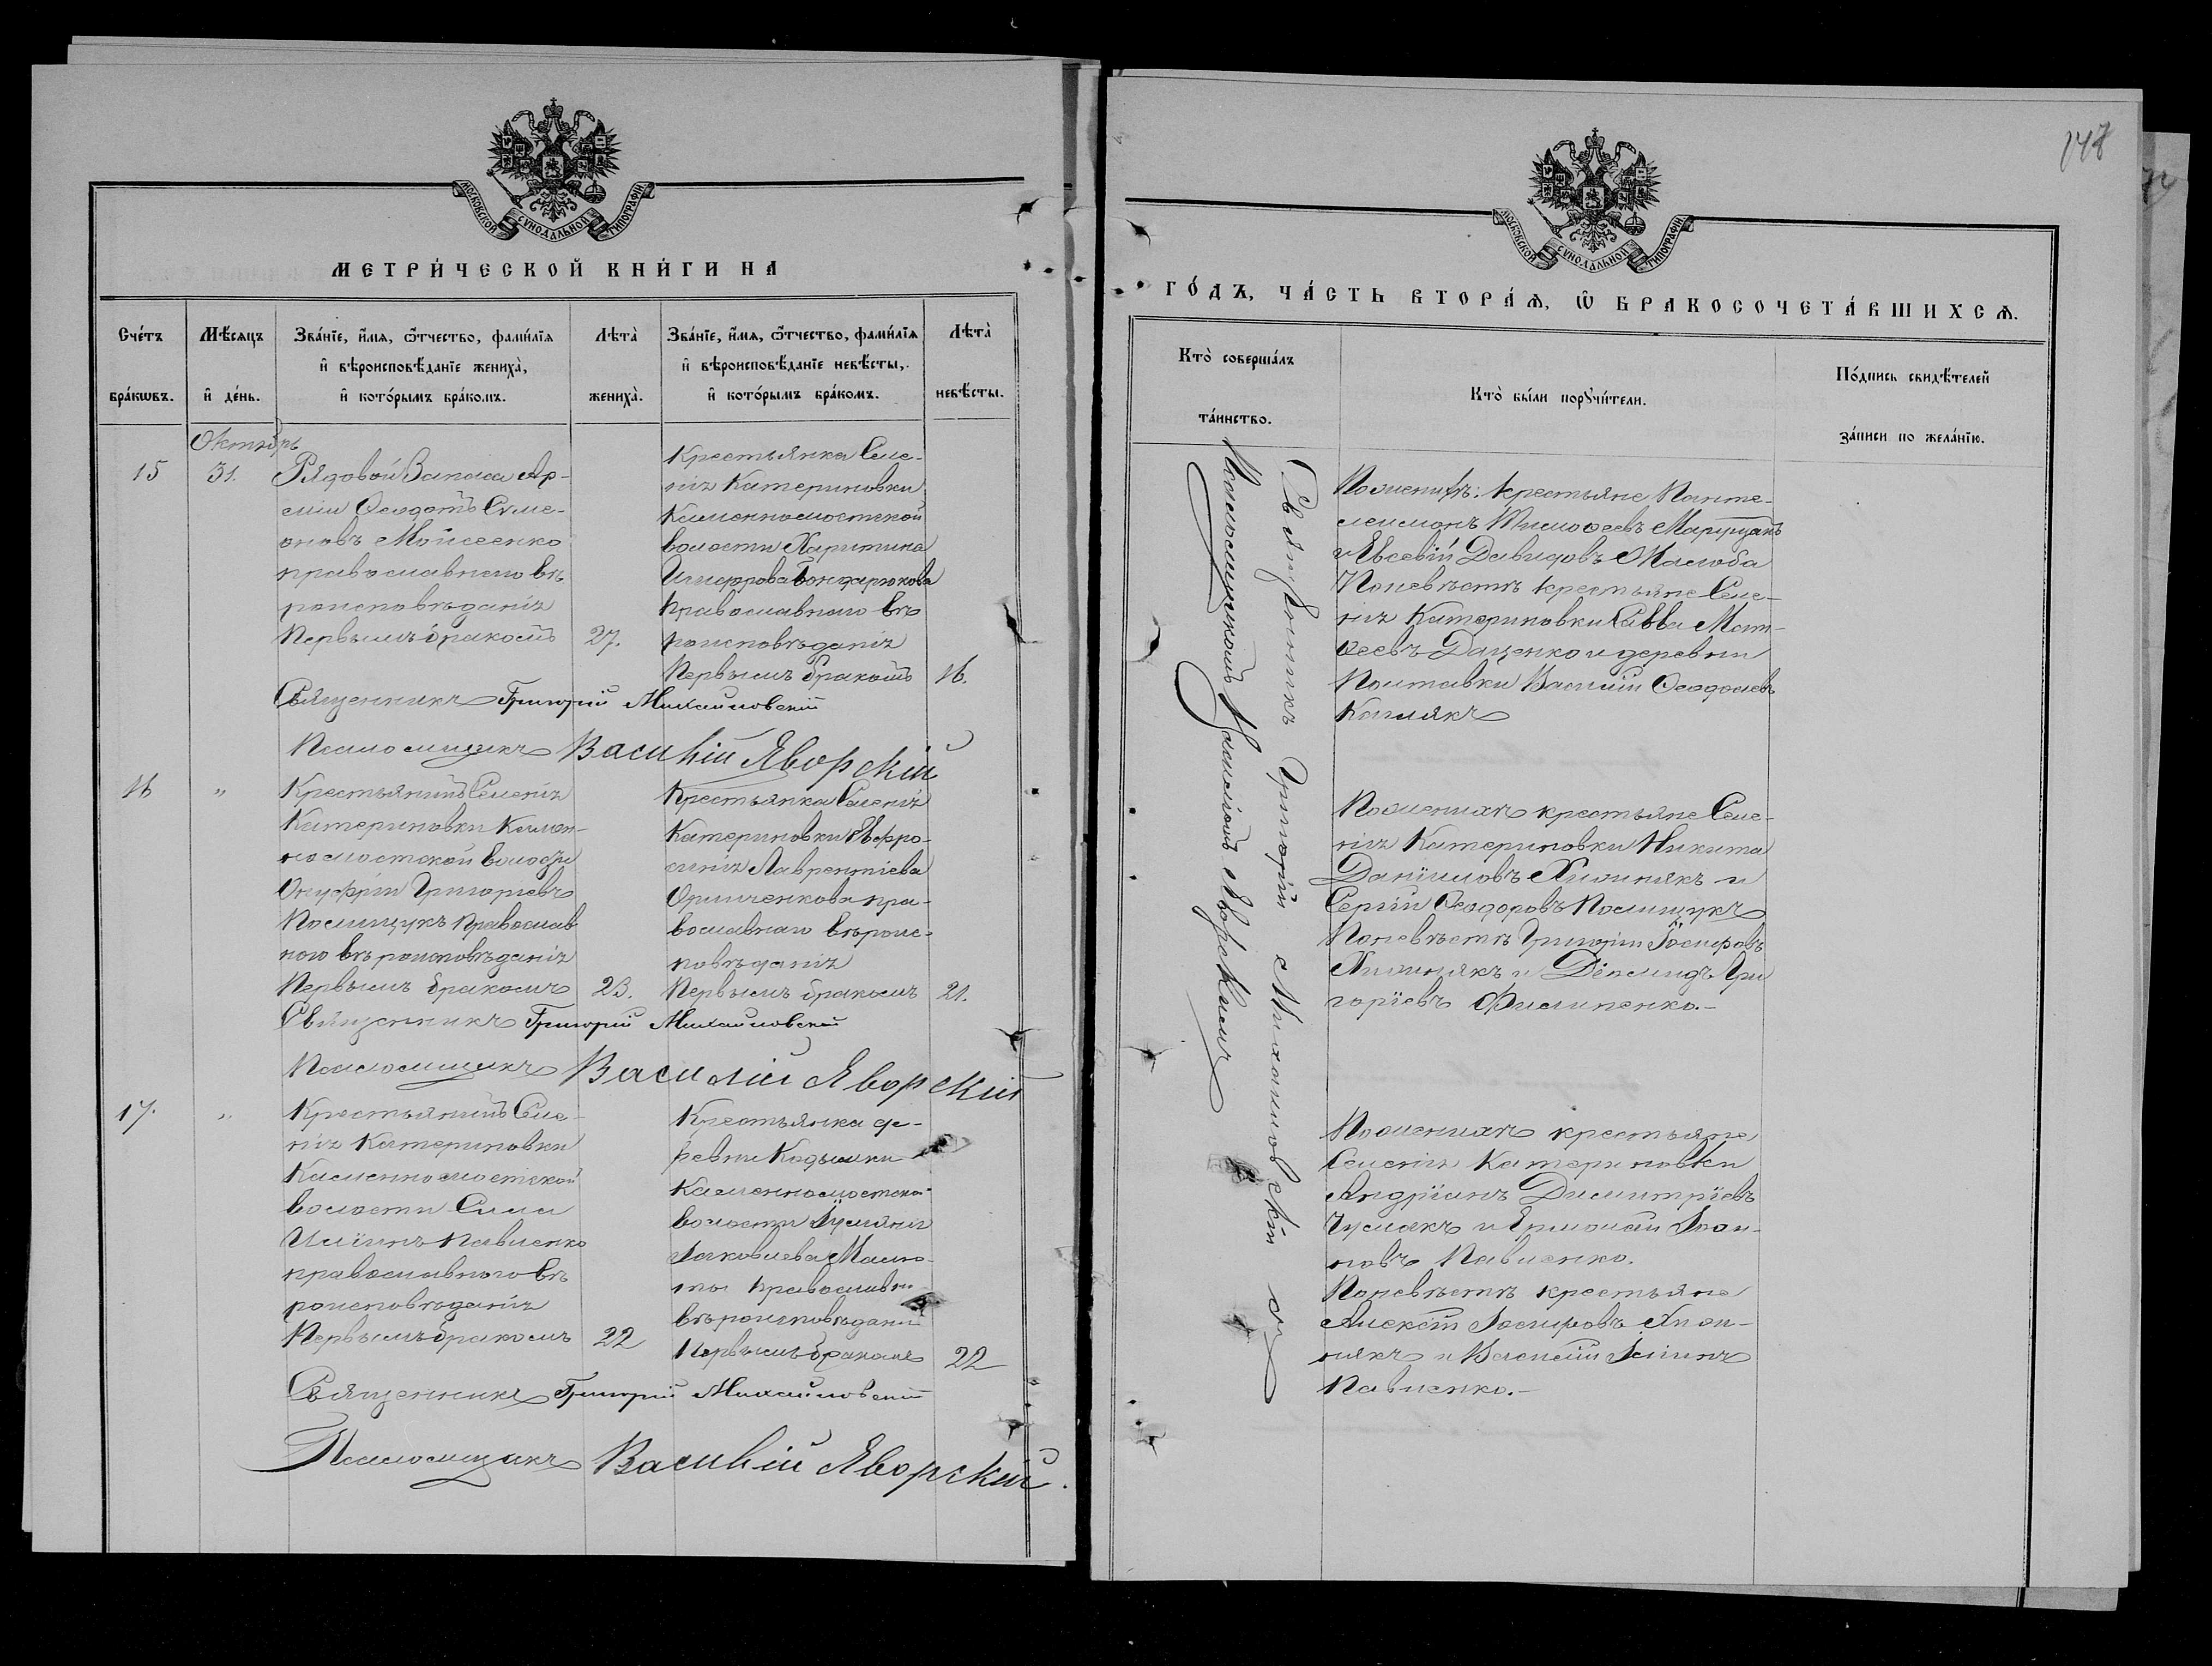 148
МОСКОВСКОЙ СУНОДАЛЬНОЙ ТИПОГРАФІИ
МЕТРИ́ЧЕСКОЙ КНИ́ГИ НА
Сче́тъ бра́кѡвъ.
Мѣ́сяцъ и҆ де́нь.
Зва́нїе, и҆́мѧ, ѻ҆́тчество, фами́лїѧ
и҆ вѣроисповѣ́данїе жениха̀,
и҆ кото́рымъ бра́комъ.
Лѣта̀ жениха̀.
Зва́нїе, и҆́мѧ, ѻ҆́тчество, фами́лїѧ
и҆ вѣроисповѣ́данїе невѣ́сты,
и҆ кото́рымъ бра́комъ.
Лѣта̀ невѣ́сты.
Октябрь
15
31.
Рядовой Запаса Ар-
міи Ѳеодотъ Симе-
оновъ Мойсеенко
православнаго вѣ
роисповѣданія
Первымъ бракомъ
27.
Крестьянка Селе-
нія Катериновки
Каменномостской
волости Харитина
Бондарюкова
Православнаго вѣ
роисповѣданія
Первымъ бракомъ
16.
Священникъ Григорій Михайловскій
Псаломщикъ Василій Яворскій
16
"
Крестьянинъ Селенія
Катериновки Камен-
номостской волости
Онуфрій Григоріевъ
Полищукъ Православ
наго вѣроисповѣданія
Первымъ бракомъ
23.
Крестьянка Селенія
Катериновки Евфро-
синія Лаврентіева
православнаго вѣроис-
повѣданія
Первымъ бракомъ
21.
Священникъ Григорій Михайловскій
Псаломщикъ Василій Яворскій
17.
"
Крестьянинъ Селе-
нія Катериновки
Каменномостской
волости Сила
Павленко
православнаго вѣ
роисповѣданія
Первымъ бракомъ
22
Крестьянка де-
ревни Кодымки
Каменномостской
волости Іуліанія
Іаковлева
Православн
вѣроисповѣдані
Первымъ бракомъ
22
Священникъ Григорій Михайловскій
Псаломщикъ Василій Яворскій.
МОСКОВСКОЙ СУНОДАЛЬНОЙ ТИПОГРАФІИ
ГО́ДЪ, ЧА́СТЬ ВТОРА́Ѧ, Ѽ БРАКОСОЧЕТА́ВШИХСѦ.
Кто̀ соверша́лъ
та́инство.
Кто̀ бы́ли порꙋчи́тели.
По́дпись свидѣ́телей
за́писи по жела́нїю.
Священникъ Григорій Михайловскій съ
Псаломщикомъ Василіемъ Яворскимъ
По женихѣ: крестьяне Панте-
леимонъ Тимоѳеевъ
и Евсевій Давидовъ
По невѣстѣ крестьяне Селе-
нія Катериновки Савва Мат-
ѳеевъ Даценко и деревни
Полтавки Василій Ѳеодосіевъ
По женихѣ крестьяне Селе-
нія Катериновки Никита
Даніиловъ Хижнякъ и
Сергій Ѳеодоровъ Полищукъ
По невѣстѣ Григорій Іосифовъ
Хижнякъ и Діомидъ Гри
горіевъ Филипенко.-
По женихѣ крестьяне
Селенія Катериновки
Андріанъ Димитріевъ
Чумакъ и Ермолай Іоан-
новъ Павленко.
По невѣстѣ крестьяне
Алексѣй Іосифовъ Хиж-
някъ и Василій
Павленко.-